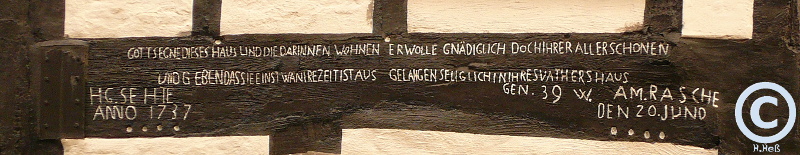 GOTT SEGNE DIESES HAUS UND DIE DARINNEN WOHNEN ER WOLLE GNÄDIGLICH DOCH IHRER ALLER SCHONEN
UND GEBEN DASS SIE EINST WAN IRE ZEIT IST AUS GELANGEN SELIGLICH IN IHRES VATHERS HAUS
GEN. 39 W.
H.G. SE HIE AM. RASCHE
ANNO 1737 DEN 20. JUNO
© H.Heß